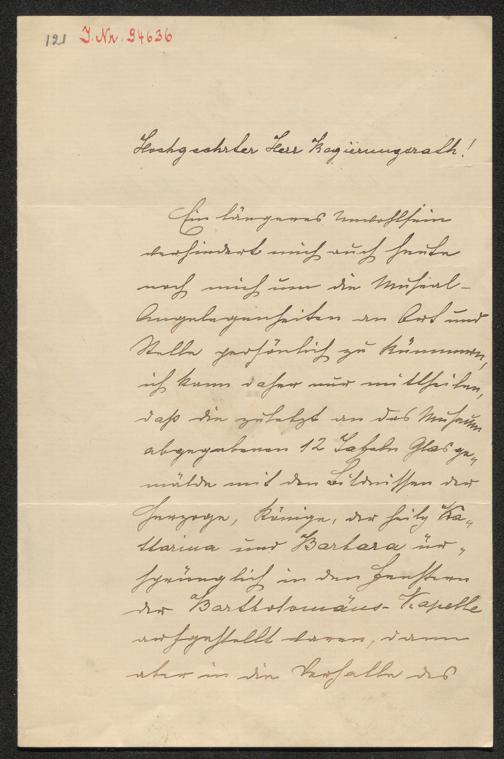 121 J. Nr. 94636
Hochgeehrter Herr Regierungsrath!
Ein längeres Unwohlsein
verhindert mich auch heute
noch mich um die Museal-
Angelegenheiten an Ort und
Stelle persönlich zu kümmern,
ich kann daher nur mittheilen,
daß die zuletzt an das Museum
abgegebenen 12 Tafeln Glasge„
mälde mit den Bildnissen der
Herzoge, Könige, der heilg Ka„
tharina und Barbara ür„
sprünglich in den Fenstern
der Bartholomäus-Kapelle
aufgestellt waren, dann
aber in die Vorhalle des